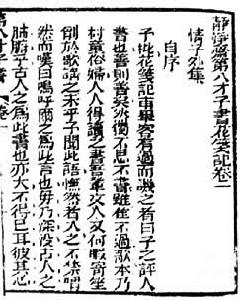 靜淨齋第八才子書花箋記卷一
情子外集
自序
予批花箋記甫畢客有過而譏之者曰子之評
書也善則善矣然獨不思書雖佳不過歌本乃
村童俗婦人人得讀之書吾輩文人又何暇寄筆
削於歌謠之末乎予聞此語憮然者久之不禁喟
然而嘆曰嗚呼爾之為此言也毋乃深沒古人之
肺腑乎古人之為此書也亦大不得已耳彼其心